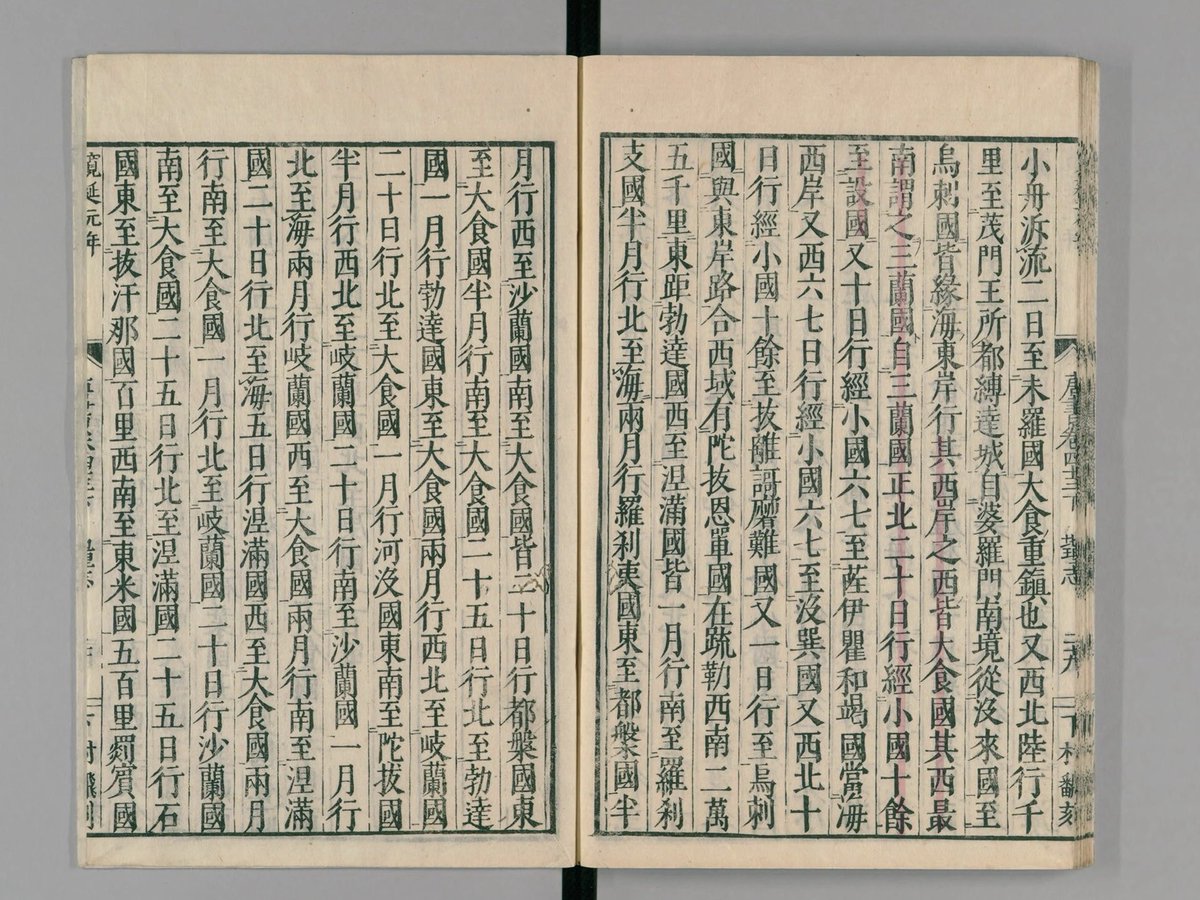 小舟泝流二日至末羅國大食重鎮也又西北陸行千
里至茂門王所都縛達城自婆羅門南境從沒來國至
烏剌國皆緣海東岸行其西岸之西皆大食國其西最
南謂之三蘭國自三蘭國正北二十日行經小國十餘
至設國又十日行經小國六七至薩伊瞿和竭國當海
西岸又西六七日行經小國六七至沒巽國又西北十
日行經小國十餘至拔離謌磨難國又一日行至烏剌
國與東岸路合西域有陀拔恩單國在疏勒西南二萬
五千里東距勃達國西至涅滿國皆一月行南至羅剎
支國半月行北至海兩月行羅剎支國東至都槃國半
月行西至沙蘭國南至大食國皆二十日行都槃國東
至大食國半月行南至大食國二十五日行北至勃達
國一月行勃達國東至大食國兩月行西北至岐蘭國
二十日行北至大食國一月行河沒國東南至陀拔國
半月行西北至岐蘭國二十日行南至沙蘭國一月行
北至海兩月行岐蘭國西至大食國兩月行南至涅滿
國二十日行北至海五日行涅滿國西至大食國兩月
行南至大食國一月行北至岐蘭國二十日行沙蘭國
南至大食國二十五日行北至涅滿國二十五日行石
國東至拔汗那國百里西南至東米國五百里罽賓國